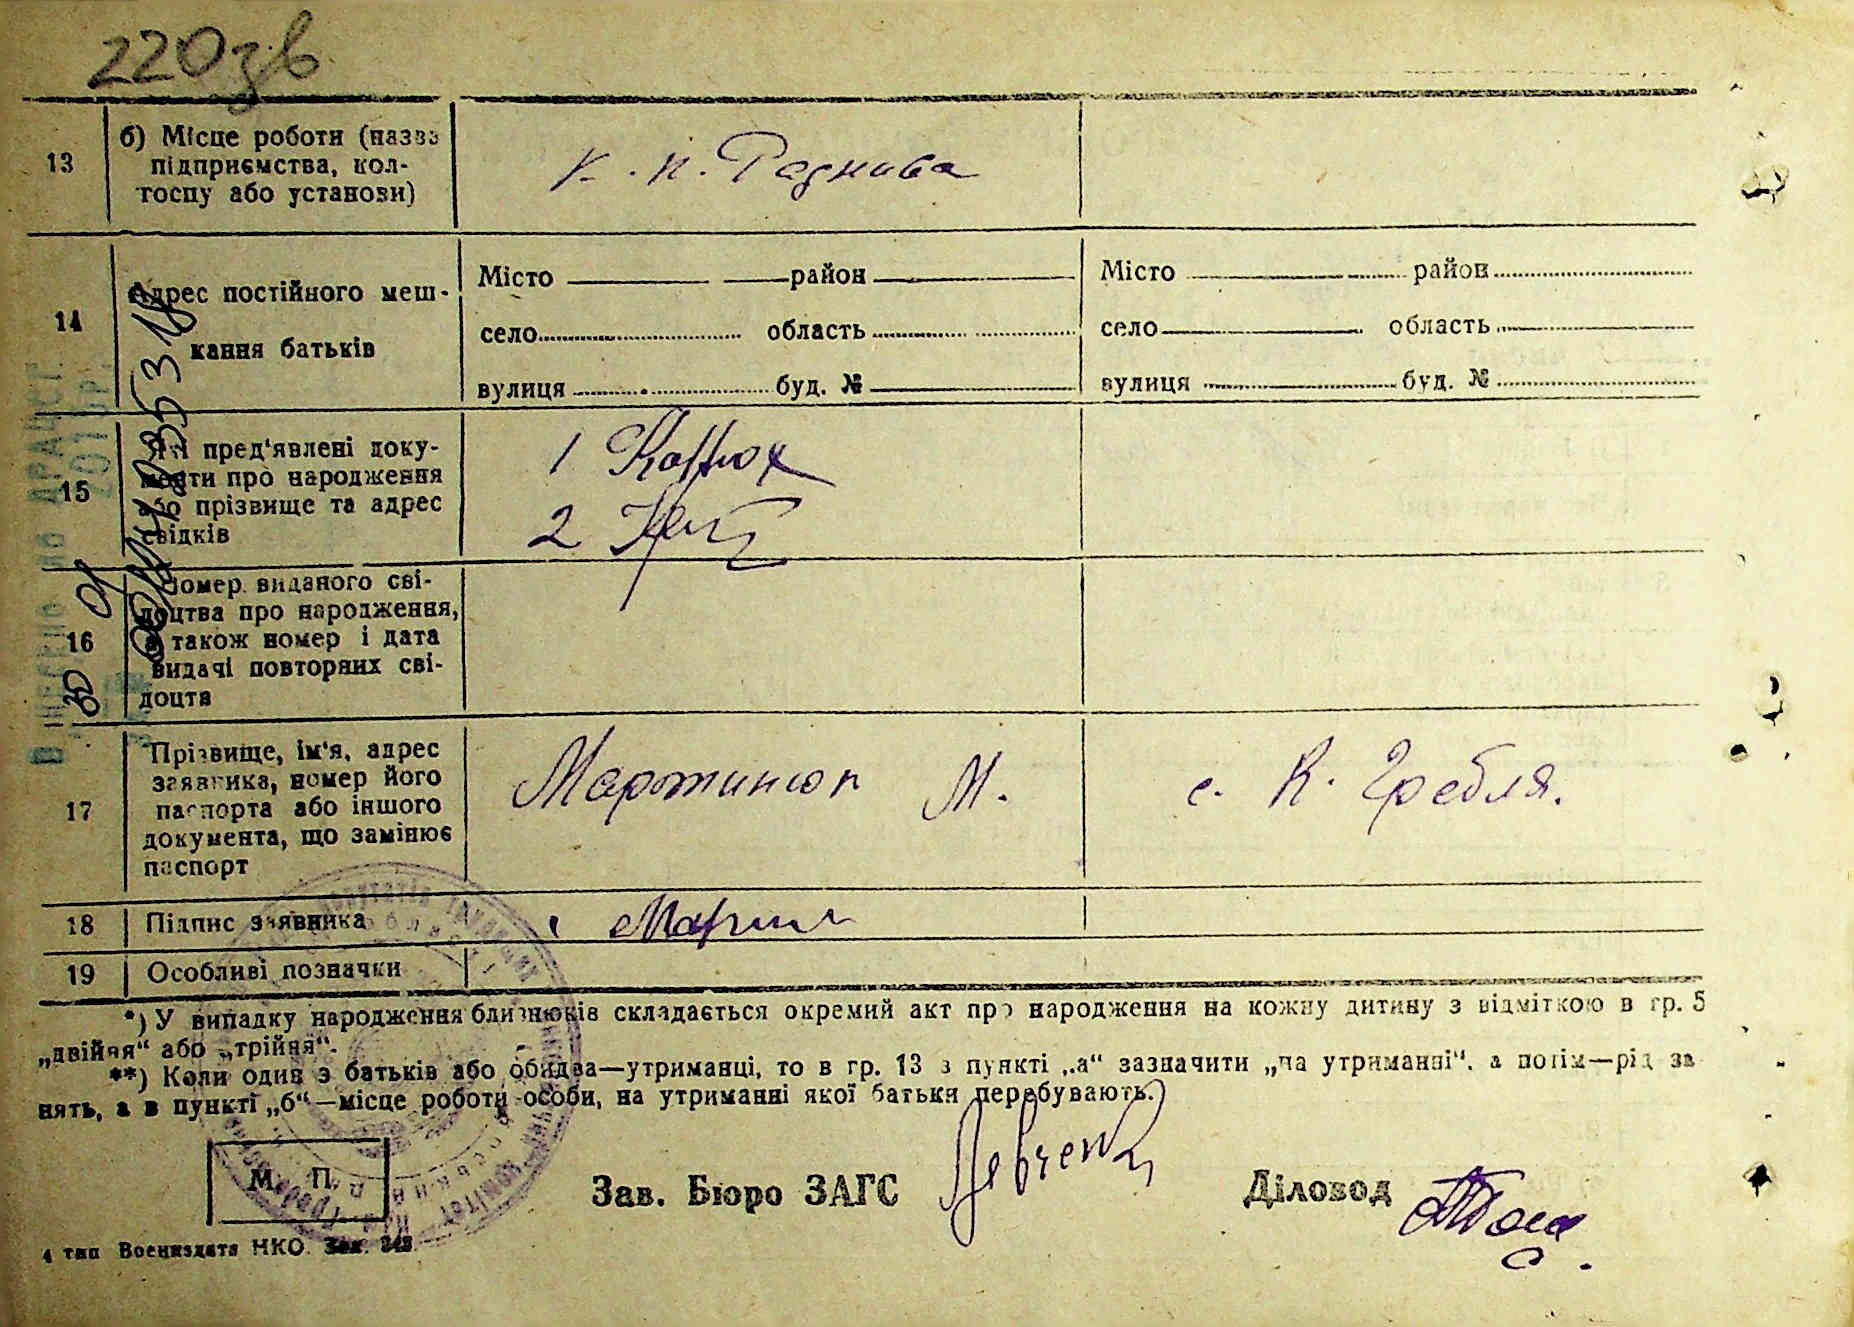 220зв
13
б) Місце роботи (назва
підприємства, кол-
госпу або установи)
К. п.
14
Адрес постійного меш-
кання батьків
Місто район
село область
вулиця буд. №
Місто район
село область
вулиця буд. №
15
Які пред'явлені доку-
менти про народження
або прізвище та адрес
свідків
1
2
16
Номер виданого сві-
доцтва про народження,
а також номер і дата
видачі повторних сві-
доцтв
17
Прізвище, ім'я, адрес
заявника, номер його
паспорта або іншого
документа, що замінює
паспорт
Мартинюк М.
с. К. Гребля.
18
Підпис заявника
19
Особливі позначки
*) У випадку народження близнюків складається окремий акт про народження на кожну дитину з відміткою в гр. 5
„двійня“ або „трійня“.
**) Коли один з батьків або обидва—утриманці, то в гр. 13 з пункті „а“ зазначити „на утриманні“, а потім—рід за
нять, а в пункті „б“—місце роботи особи, на утриманні якої батьки перебувають.
М. П.
Зав. Бюро ЗАГС
Діловод
4 тип Воениздата НКО. Зак. 343